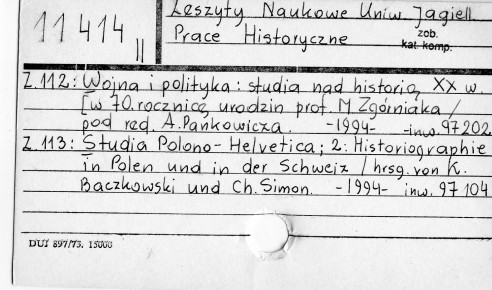 Zeszyty Naukowe Uniw. Jagiell.
11414 II
Prace Historyczne
zob.
kat. komp.
Z.112: Wojna i polityka: studia nad historią XX w.
[w 70. rocznicę urodzin prof. M. Zgórniaka /
pod red. A. Pankowicza. -1994- inw. 97202
Z.113: Studia Polono-Helvetica; 2: Historiographie
in Polen und in der Schweiz / hrsg. von K.
Baczkowski und Ch. Simon. -1994- inw. 97104
DUJ 897/73. 15000